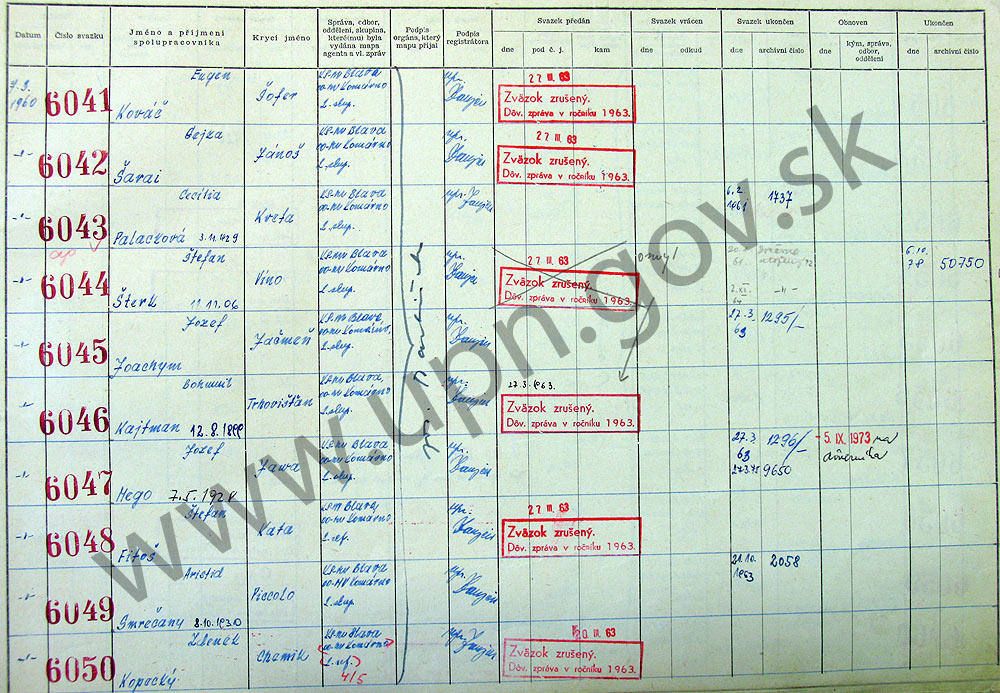 Datum
Číslo svazku
Jméno a příjmení
spolupracovníka
Krycí jméno
Správa, odbor,
oddělení, skupina,
které(mu) byla
vydána mapa
agenta a vl. zpráv
Podpis
orgána, který
mapu přijal
Podpis
registrátora
Svazek předán
dne
pod č. j.
kam
Svazek vrácen
dne
odkud
Svazek ukončen
dne
archivní číslo
Obnoven
dne
kým, správa,
odbor,
oddělení
Ukončen
dne
archivní číslo
7.3.
1960
6041
Eugen
Kováč
Šofer
KS-MV Blava
oo-MV Komárno
2. skup.
27 III. 63
Zväzok zrušený.
Dôv. zpráva v ročníku 1963.
-"-
6042
Gejza
Šarai
Jánoš
KS-MV Blava
oo-MV Komárno
2. skup.
27 III. 63
Zväzok zrušený.
Dôv. zpráva v ročníku 1963.
-"-
6043
Cecília
Palacková 3.11.929
Kveta
KS-MV Blava
oo-MV Komárno
2. skup.
6.2.
1961
1737
-"-
6044
Štefan
Šterk 11.11.06
Víno
KS-MV Blava
oo-MV Komárno
2. skup.
27 III. 63
Zväzok zrušený.
Dôv. zpráva v ročníku 1963.
omyl
6.10.
78
50750
-"-
6045
Jozef
Joachym
Jačmeň
KS-MV Blava,
oo-MV Komárno,
2. skup.
27.3.
63
1295/-
-"-
6046
Bohumil
Kajtman 12.8.1899
Trhovišťan
KS-MV Blava,
oo-MV Komárno
2. skup.
27.3.1963.
Zväzok zrušený.
Dôv. zpráva v ročníku 1963.
-"-
6047
Jozef
Hego 7.5.1928
Jawa
KS-MV Blava
oo-MV Komárno
2. skup.
27.3.
63
1296/-
9650
- 5. IX. 1973 na
dôverníka
-"-
6048
Štefan
Fitoš
Kata
KS-MV Blava,
oo-MV Komárno,
2. ref.
27 III. 63
Zväzok zrušený.
Dôv. zpráva v ročníku 1963.
-"-
6049
Aristid
Smrečány 8.10.1930
Piccolo
KS-MV Blava
oo-MV Komárno
2. skup.
21.10.
1963
2058
-"-
6050
Zdenek
Kopecký
Chemik
KS-MV Blava
oo-MV Komárno
2. ref.
4/5
20 III. 63
Zväzok zrušený.
Dôv. zpráva v ročníku 1963.
www.upn.gov.sk